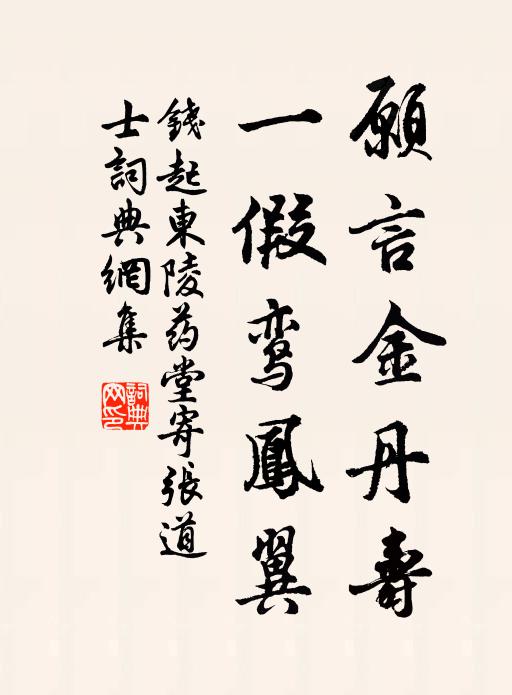 願言金丹壽
一假鸾鳳翼
錢起東陵药堂寄張道
士詞典網集
詞典網印